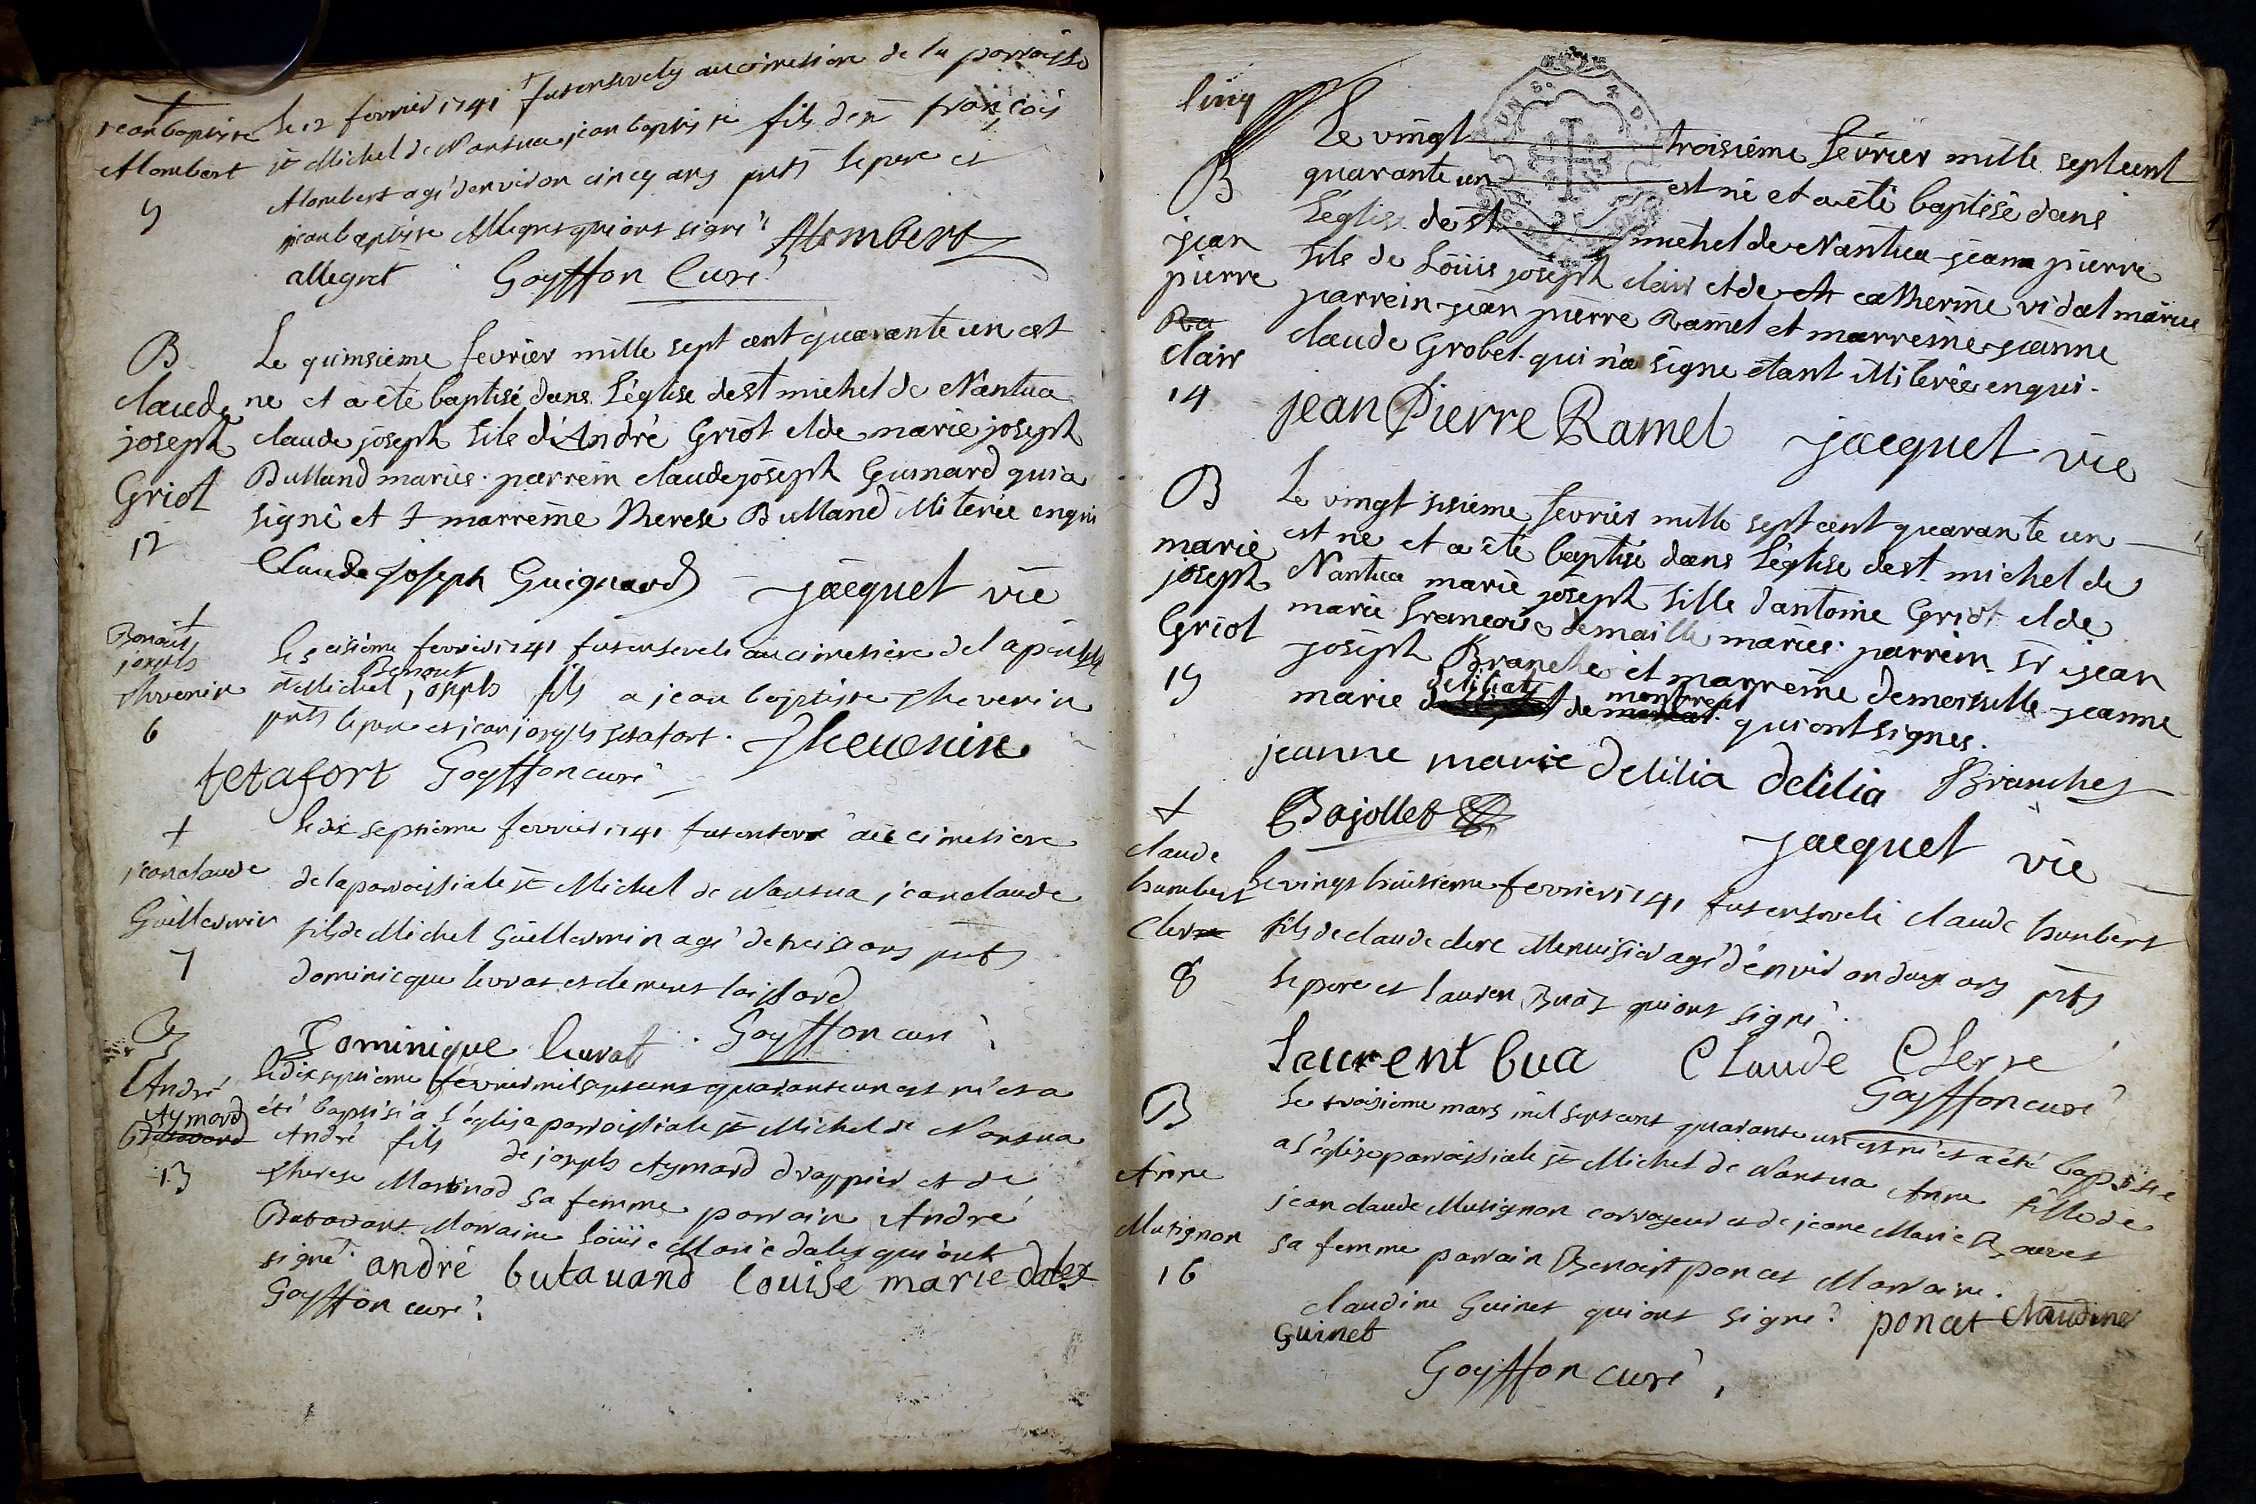 +
jean baptiste
Alombert
5
le 12 fevrier 1741 fut ensevely au cimetiere de la parroisse
st Michel de Nantua jean baptiste fils de sr françois
Alombert agé d'environ cinq ans pnts le pere et
jean baptiste Allegret qui ont signé Alombert
allegret Goyffon Curé
B
claude
joseph
Griot
12
Le quinsieme fevrier mille sept cent quarante un est
ne et a été baptisé dans L'église de st michel de Nantua
claude joseph fils d'André Griot et de marie joseph
Bulland mariés. parrein claude joseph Guinard qui a
signé et marreine Therese Bulland illiterée enquis
Claude joseph Guignard jacquet vic
+
Benoit
joseph
thevenin
6
le seisieme fevrier 1741 fut enseveli au cimetiere de la
st Michel Benoit joseph fils a jean baptiste thevenin
pnts le pere et jean joseph tetafort. Thevenin
tetafort Goyffon curé
+
jean claude
Guillermin
7
le dix septieme fevrier 1741 fut enterré au cimetiere
de la paroissiale st Michel de Nantua jean claude
fils de Michel Guillermin agé de treise ans pnts
dominicque levrat et clement
Dominique levrat Goyffon curé
B
André
Aymard
Butavand
13
le dix septieme fevrier mil sept cent quarante un est né et a
été baptisé a l'église paroissiale st Michel de Nantua
André fils de joseph Aymard drappier et de
therese Martinod sa femme parrain André
Butavant Marraine Louise Marie dalex qui ont
signé. andré butavand louise marie dalex
Goyffon curé
cinq
B
jean
pierre
Ra
clair
14
Le vingt troisieme fevrier mille sept cent
quarante un est né et a été baptisé dans
L'église de st michel de Nantua jean pierre
fils de Loüis joseph clair et de catherine vidal mariés
parrein jean pierre Ramel et marreine jeanne
claude Grobet qui n'a signé étant illiterée enquis.
jean Pierre Ramel jacquet vic
B
marie
joseph
Griot
15
Le vingt sisieme fevrier mille sept cent quarante un
est né et a été baptisé dans L'église de st michel de
Nantua marie joseph fille d'antoine Griot et de
marie francoise demaille mariés. parrein sr jean
joseph Branche et marreine demoiselle jeanne
marie delilia de montreal qui ont signés.
jeanne marie delilia delilia Branche
Bajollet
jacquet vic
+
claude
humbert
Clerc
8
le vingt huitieme fevrier 1741 fut enseveli claude humbert
fils de claude clerc Menuisier agé d'environ deux ans pnts
le pere et lauren Buat qui ont signé.
Laurent bua Claude Clerre
Goyffon curé
B
Anne
Mutignon
16
le troisieme mars mil sept cent quarante un est né et a été baptisé
a l'église paroissiale st Michel de Nantua Anne fille de
jean claude Mutignon corroyeur et de jeane Marie
sa femme parrain Benoist poncet Marraine.
claudine Guinet qui ont signé poncet claudine
Guinet
Goyffon curé